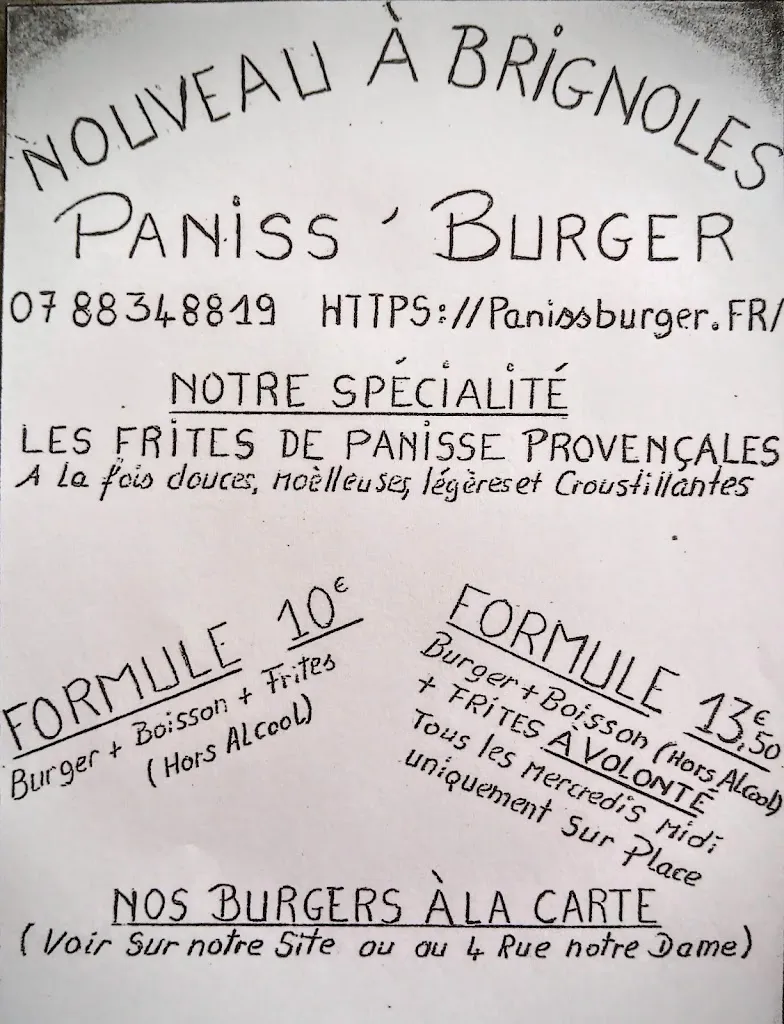 NOUVEAU À BRIGNOLES
PANISS ' BURGER
07 88 34 88 19 HTTPS://Panissburger.FR/
NOTRE SPÉCIALITÉ
LES FRITES DE PANISSE PROVENÇALES
A La fois douces, moëlleuses, légères et Croustillantes
FORMULE 10€
Burger + Boisson + Frites
(Hors ALcooL)
FORMULE 13,50€
Burger + Boisson (Hors ALcooL)
+ FRITES À VOLONTÉ
Tous les Mercredis Midi
uniquement Sur Place
NOS BURGERS À LA CARTE
(Voir Sur notre Site ou au 4 Rue notre Dame)